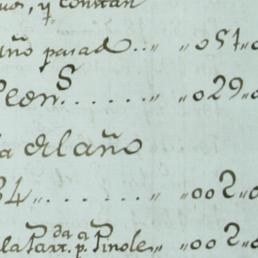 y constan
año pasad... " " 051 "
" " 029 "
a del año
34 " ...... " " 002 "
la Parr. p.a Pinole " " 002 "